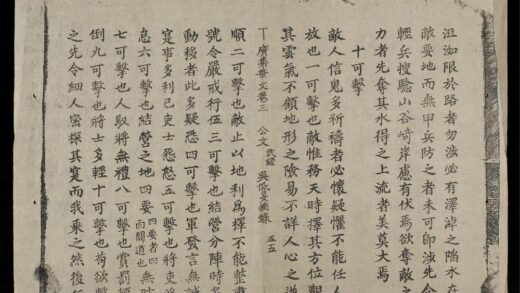 沮洳限於路者勿涉必有潭淖之陷水在
敵要地而無甲兵防之者未可即涉先令
輕兵搜騐山谷崎岸慮有伏焉欲奪敵之
力者先奪其水得之上流者美莫大焉
十可擊
敵人信鬼多祈禱者必懷疑懼不能任人
故也一可擊也敵惟務天時擇其方位觀
其雲氣不顧地形之險易不詳人心之逆
丁廣集華文卷三 公文 武經 吳 錄 五五
順二可擊也敵止以地利爲擇不能整肅
號令嚴戒行伍三可擊也結營分陣時
動移者此多疑恐四可擊也軍發言無誠
寔事多利己吏士恐怒五可擊也將吏
息六可擊也結營之地四要四要者四面關道也無防
七可擊也人馭將無禮八可擊也賞罰
倒九可擊也將士多輕十可擊也苟欲擊
之先令細人密探其寔而我乘之然後